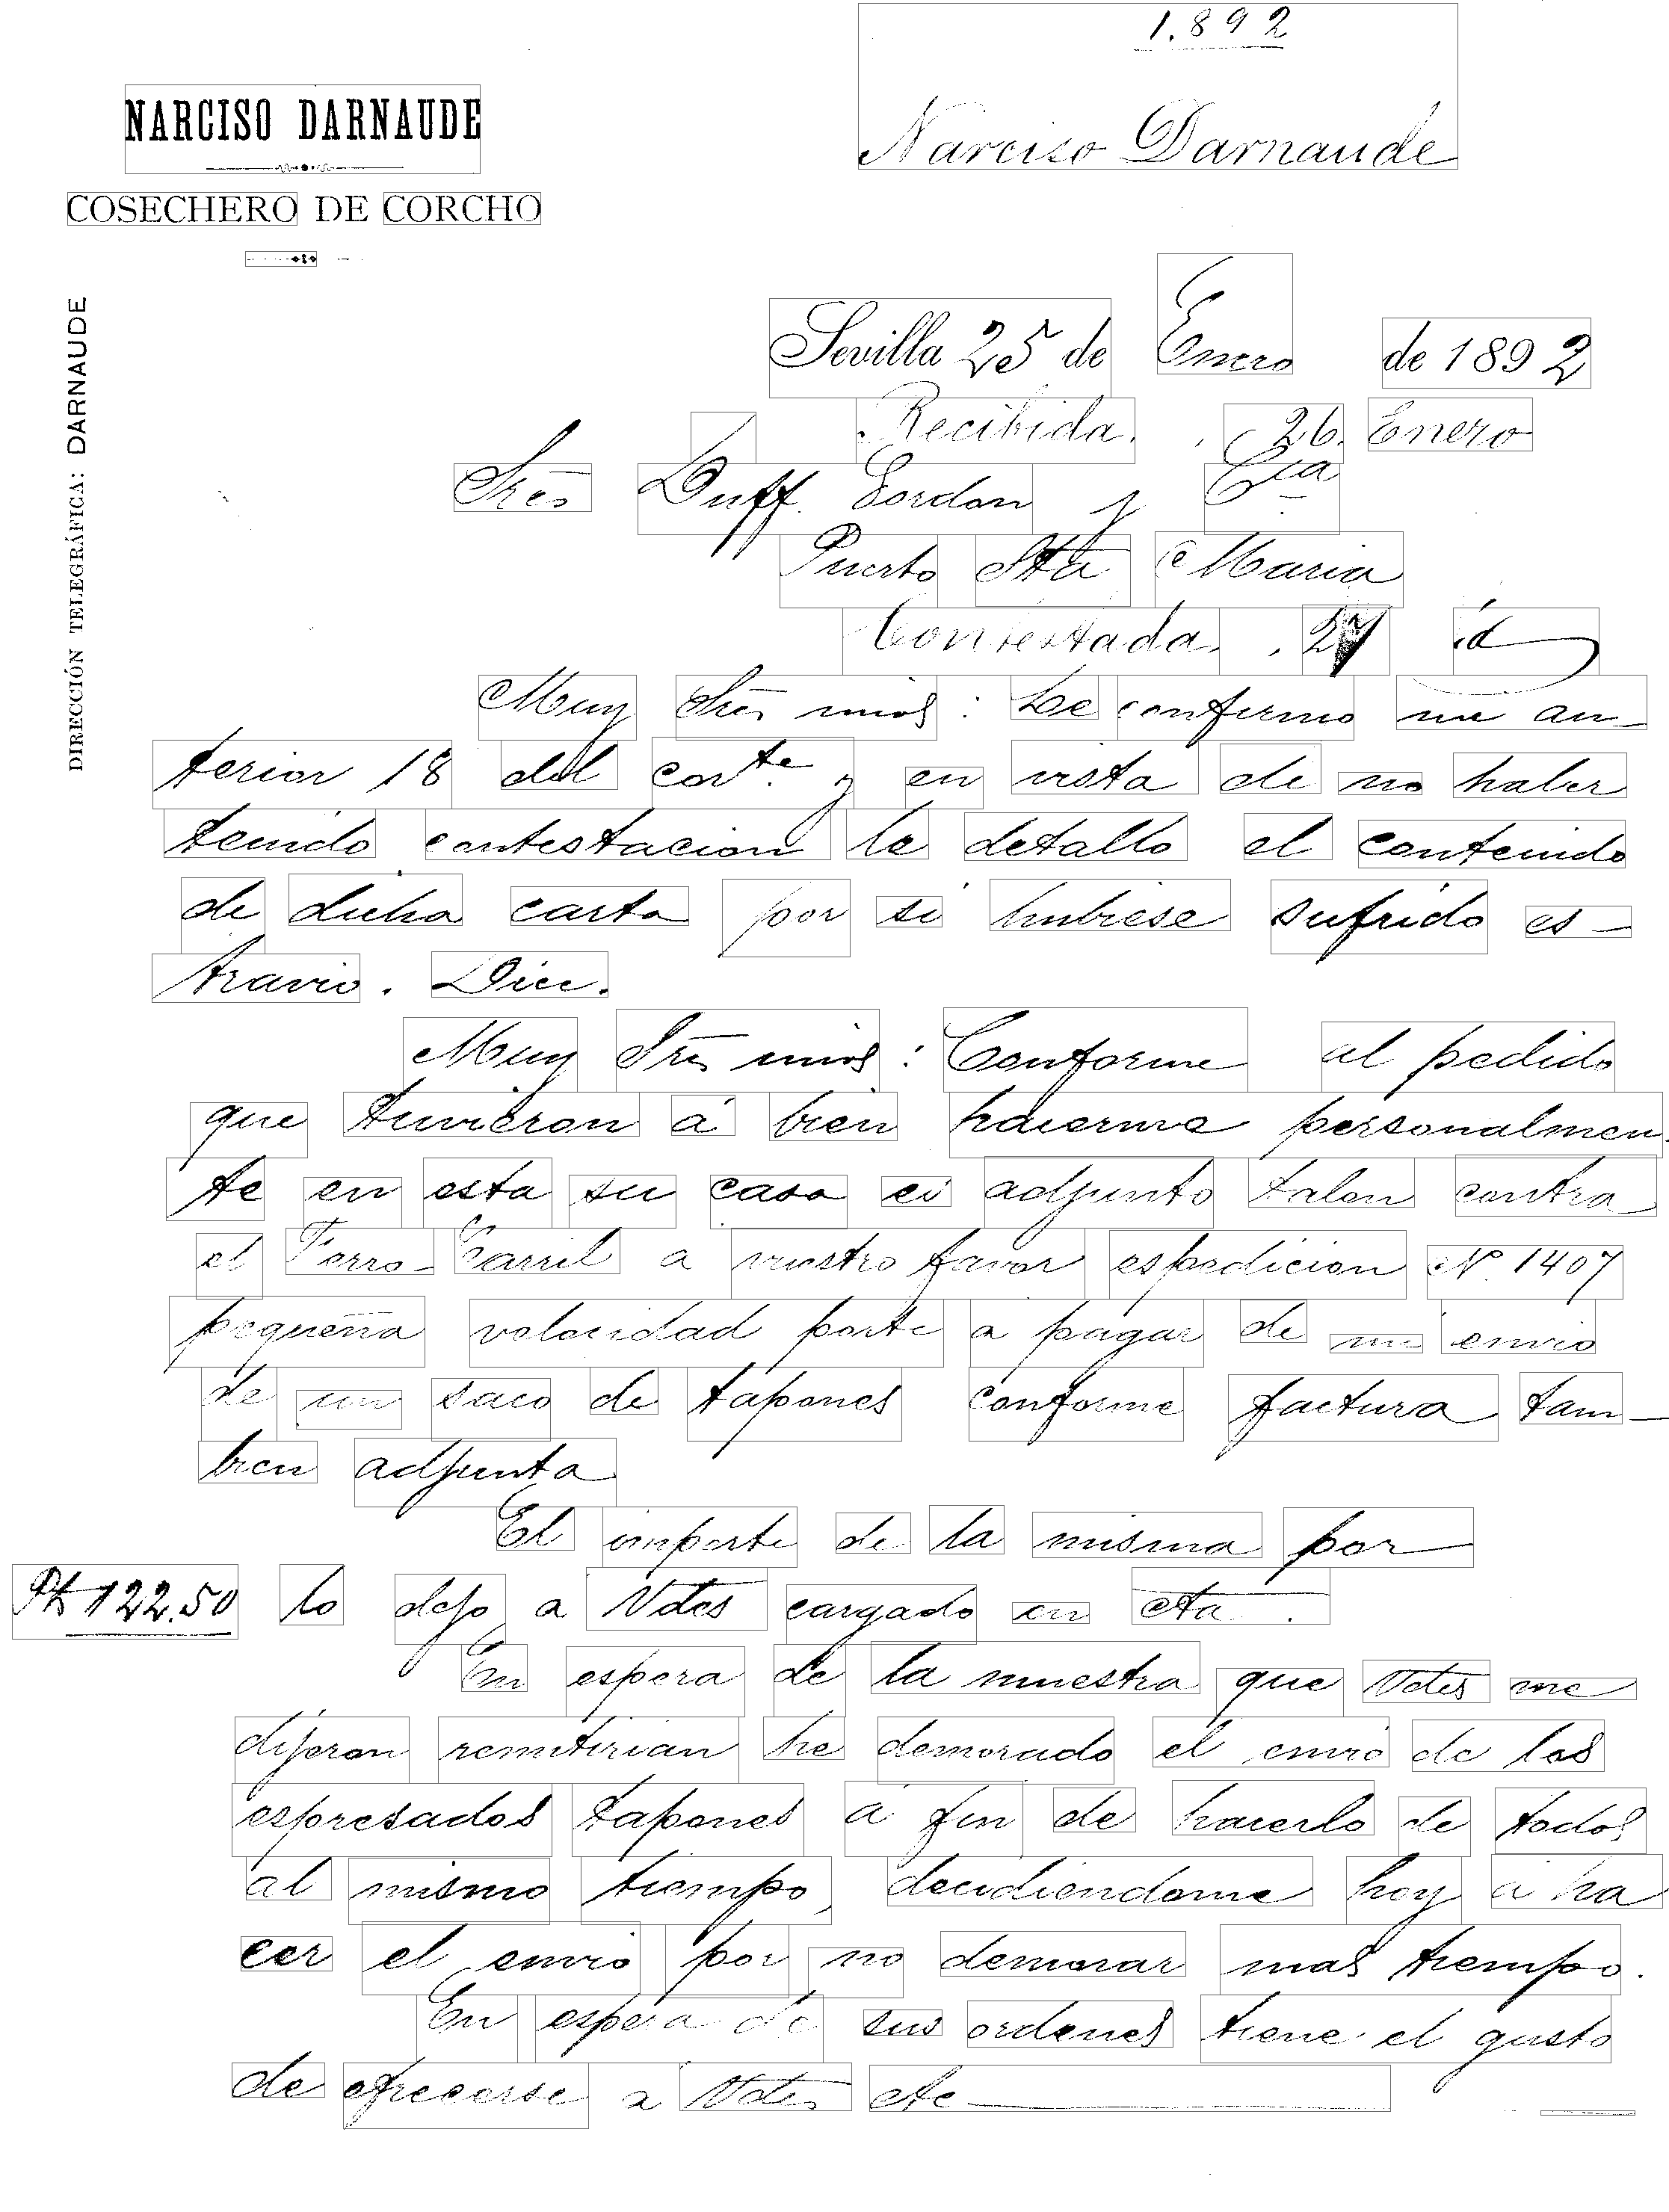 1.892
Narciso Darnaude
NARCISO DARNAUDE
COSECHERO DE CORCHO
DIRECCIÓN TELEGRÁFICA: DARNAUDE
Sevilla 25 de Enero de 1892
Recibida. . 26. Enero
Sres Duff. Gordon y Cia
Puerto Sta Maria
Contestada. . 27 id
Muy Sres mios : Le confirmo mi an-
terior 18 del corte. y en vista de no haber
tenido contestacion le detallo el contenido
de dicha carta por si hubiese sufrido es-
travio. Dice.
Muy Sres mios : Conforme al pedido
que tuvieron á bien hacerme personalmen-
te en esta su casa es adjunto talon contra
el Ferro-Carril a vuestro favor espedicion Nº 1407
pequeña velocidad porte a pagar de mi envio
de un saco de tapones conforme factura tam-
bien adjunta
El importe de la misma por
Pts 122.50 lo dejo a Vdes cargado en cta.
En espera de la muestra que Vdes me
dijeron remitirian he demorado el envio de los
espresados tapones á fin de hacerlo de todos
al mismo tiempo, decidiendome hoy á ha
cer el envio por no demorar mas tiempo.
En espera de sus ordenes tiene el gusto
de ofrecerse a Vdes etc